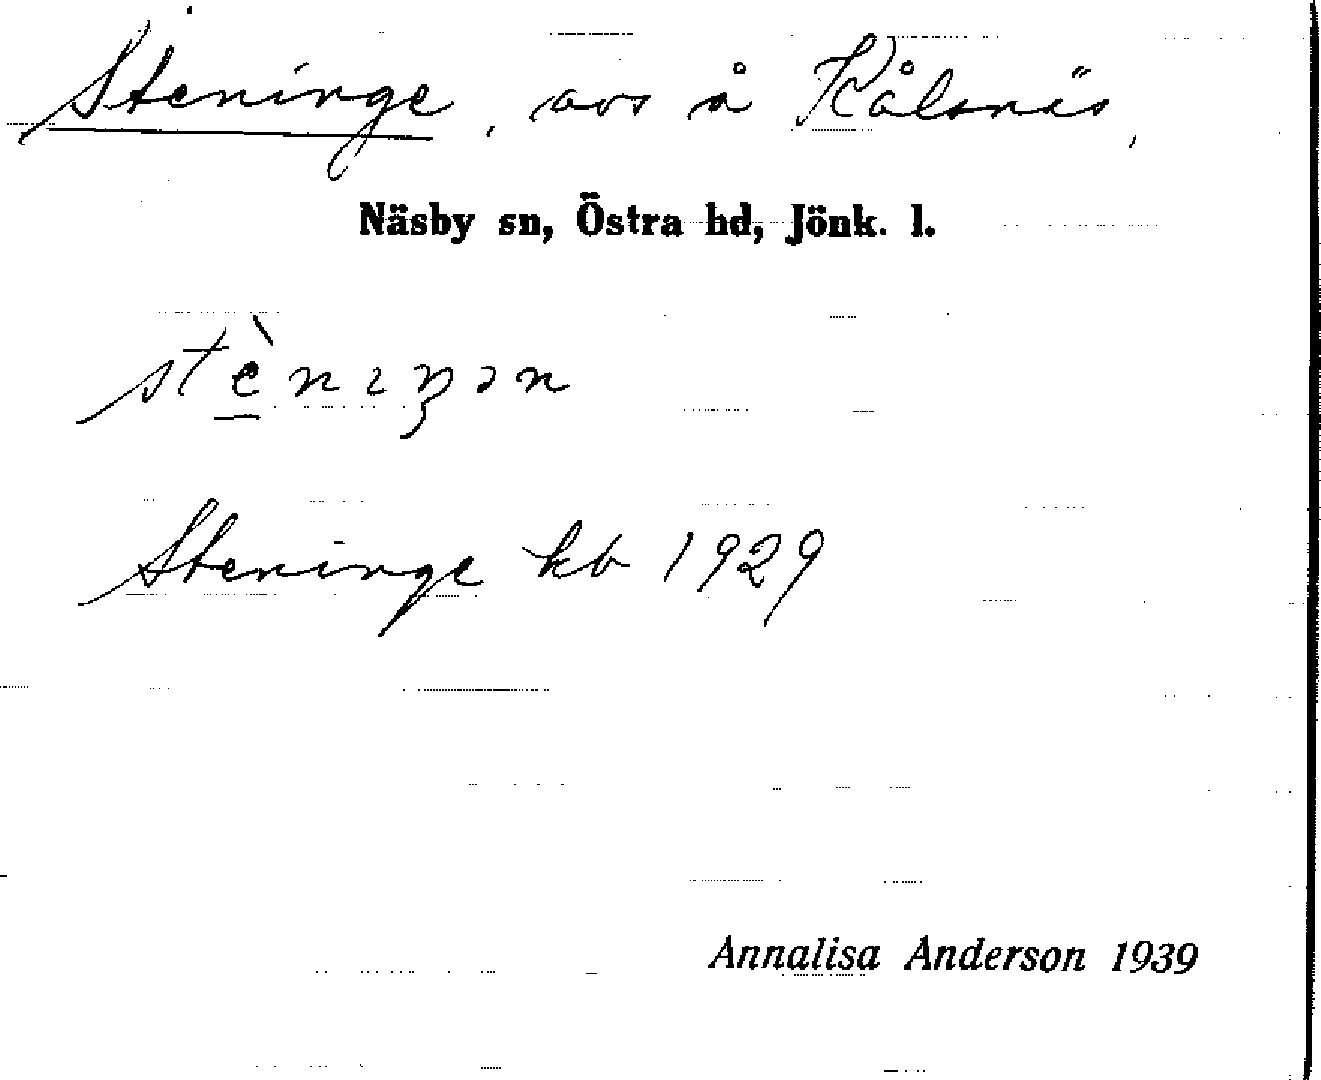 Steninge, avs å Kålsnäs,
Näsby sn, Östra hd, Jönk. l.
Steninge kb 1929
Annalisa Anderson 1939